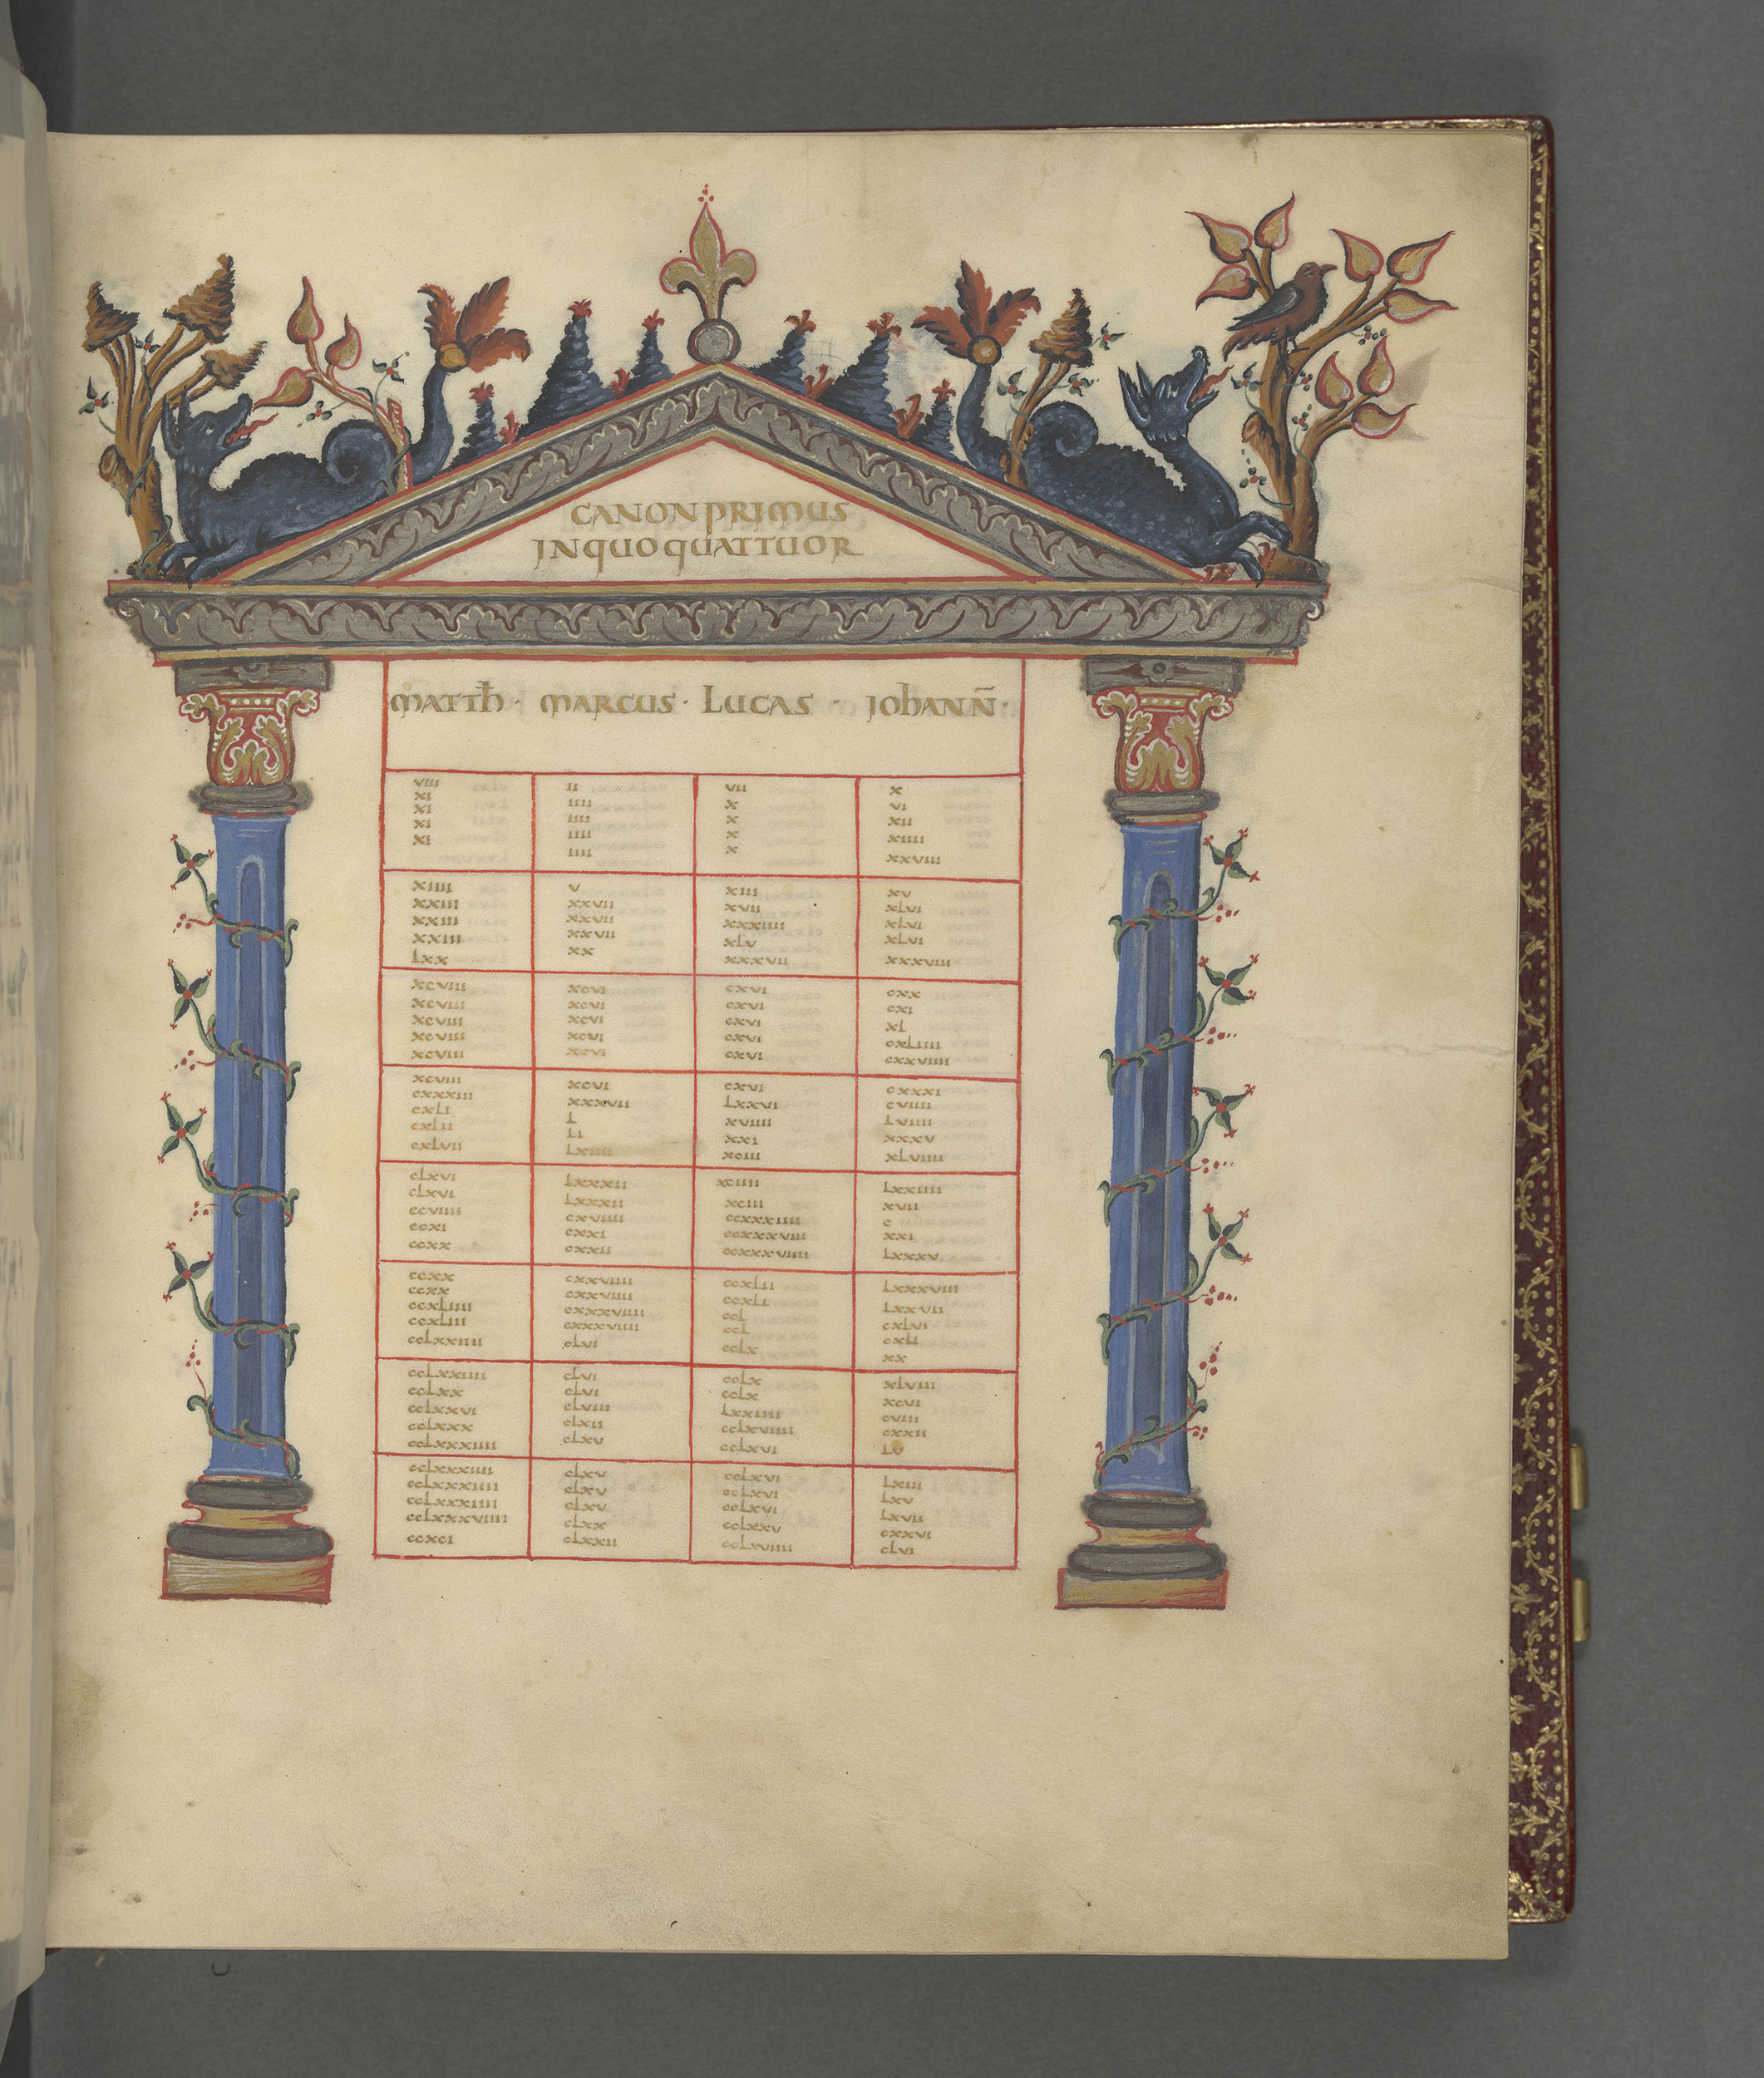 CANON PRIMUS
IN QUO QUATTUOR
MATTħ · MARCUS · LUCAS · JOhANN̄ ·
viii ii vii x
xi iiii x vi
xi iiii x xii
xi iiii x xiiii
xi iiii x xxviii
xiiii v xiii xv
xxiii xxvii xvii xlvi
xxiii xxvii xxxiiii xlvi
xxiii xxvii xlv xlvi
lxx xx xxxvii xxxviii
xcviii xcvi cxvi cxx
xcviii xcvi cxvi cxi
xcviii xcvi cxvi xl
xcviii xcvi cxvi cxliiii
xcviii xcvi cxvi cxxviiii
xcviii xcvi cxvi cxxxi
cxxxiii xxxvii lxxvi cviiii
cxli l xviiii lviiii
cxlii li xxi xxxv
cxlvii lxiiii xciii xlviiii
clxvi lxxxii xciiii lxxiiii
clxvi lxxxii xciii xvii
ccviiii cxviiii ccxxxiiii c
ccxi cxxi ccxxxviii xxi
ccxx cxxii ccxxxviiii lxxxv
ccxx cxxviiii ccxlii lxxxviii
ccxx cxxviiii ccxli lxxvii
ccxliiii cxxxviiii ccl cxlvi
ccxliii cxxxviiii ccl cxli
cclxxiiii clvi cclx xx
cclxxiiii clvi cclx xlviii
cclxx clvi cclx xcvi
cclxxvi clviii lxxiiii cviii
cclxxx clxii cclxviiii cxxii
cclxxxiiii clxv cclxvi lv
cclxxxiiii clxv cclxvi lxiii
cclxxxiiii clxv cclxvi lxv
cclxxxiiii clxv cclxvi lxvii
cclxxxviiii clxx cclxxv cxxvi
ccxci clxxii cclxviiii clvi